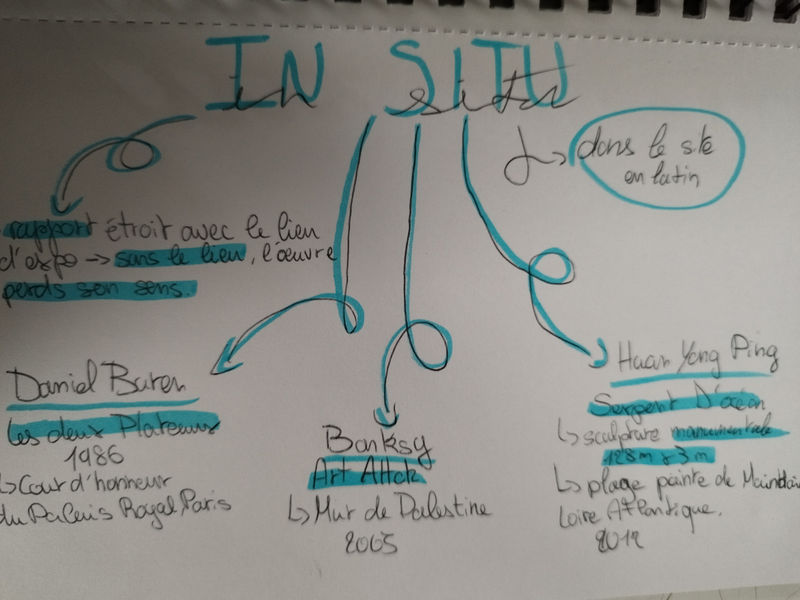 IN SITU
in situ
dans le site
en latin
rapport étroit avec le lieu
d'expo → sans le lieu, l'œuvre
perds son sens.
Daniel Buren
Les deux Plateaux
1986
↳ Cour d'honneur
du Palais Royal Paris
Banksy
Art Attck
↳ Mur de Palestine
2005
Huan Yong Ping
Serpent D'océan
↳ sculpture monumentale
128m x 3m
↳ plage pointe de
Loire Atlantique.
2012